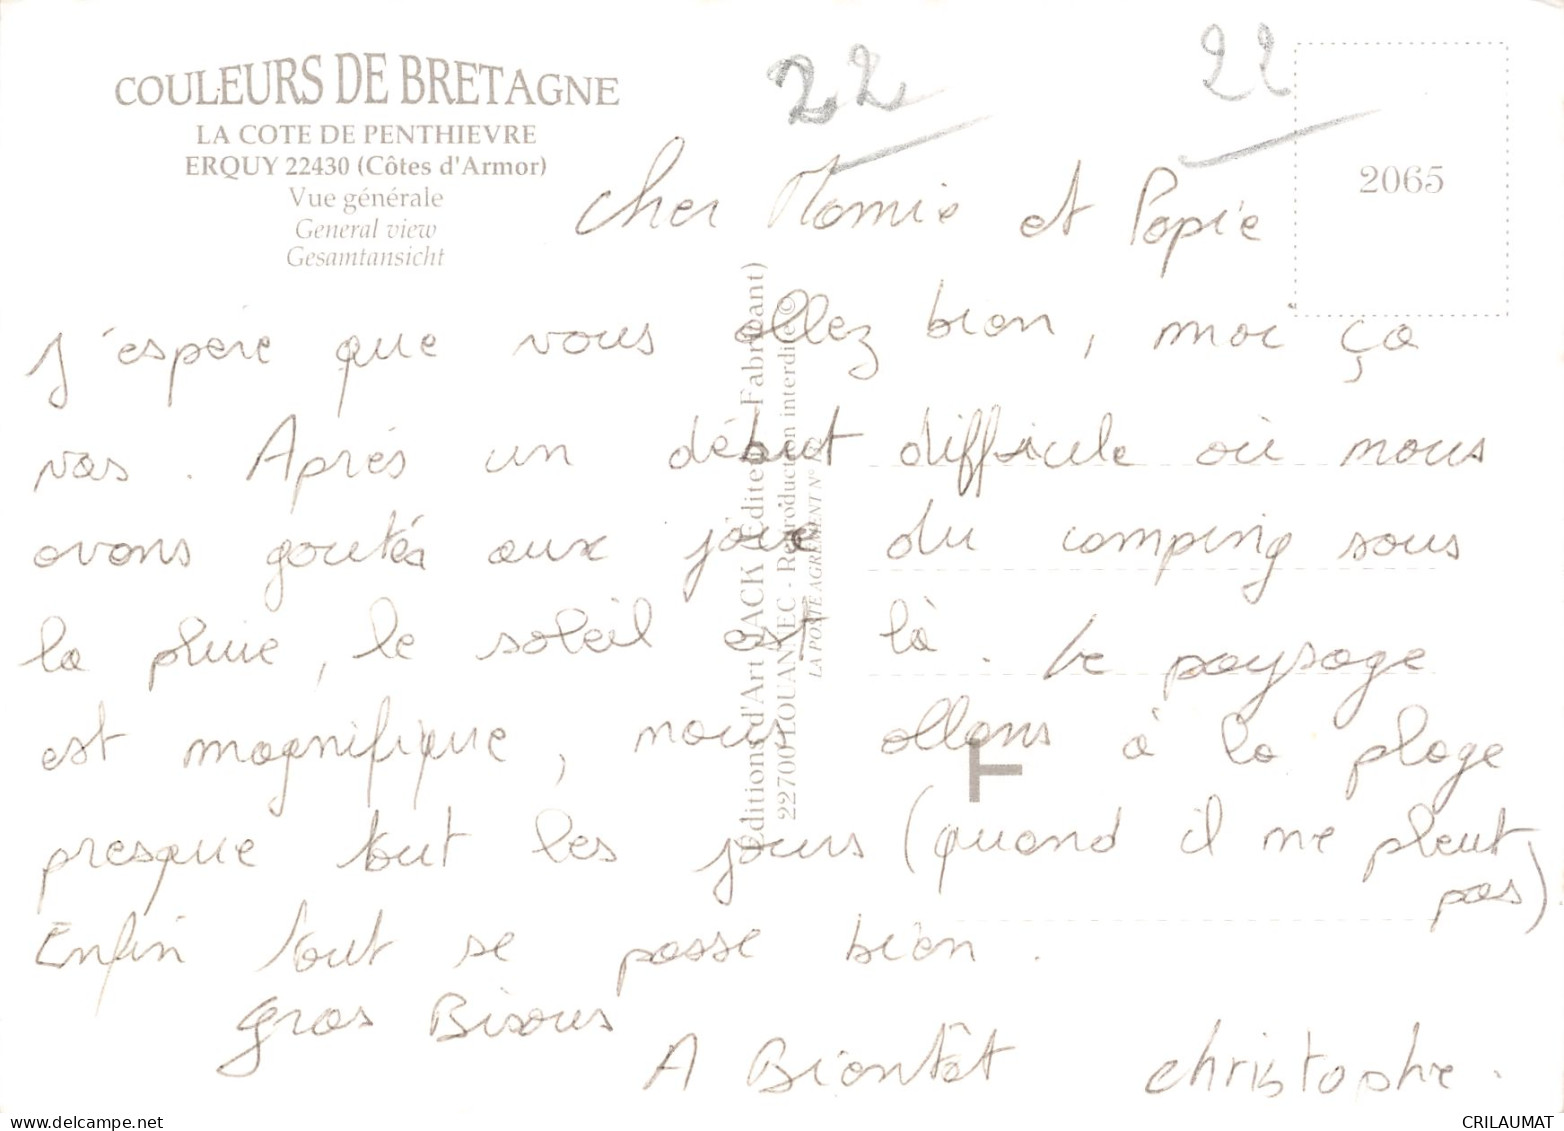 COULEURS DE BRETAGNE
LA COTE DE PENTHIEVRE
ERQUY 22430 (Côtes d'Armor)
Vue générale
General view
Gesamtansicht
22
22
2065
cher Mamie et Papie
J'espère que vous allez bien, moi ça
vas. Après un début difficile où nous
avons goutés aux joie du camping sous
la pluie, le soleil est là. Le paysage
est magnifique, nous allons à la plage
presque tout les jours (quand il ne pleut
pas)
Enfin tout se passe bien.
Gros Bisous
A Bientôt christophe.
Editions d'Art JACK (Editeur-Fabricant)
22700 LOUANNEC - Reproduction interdite ©
LA POSTE AGREMENT N°
T
www.delcampe.net
CRILAUMAT